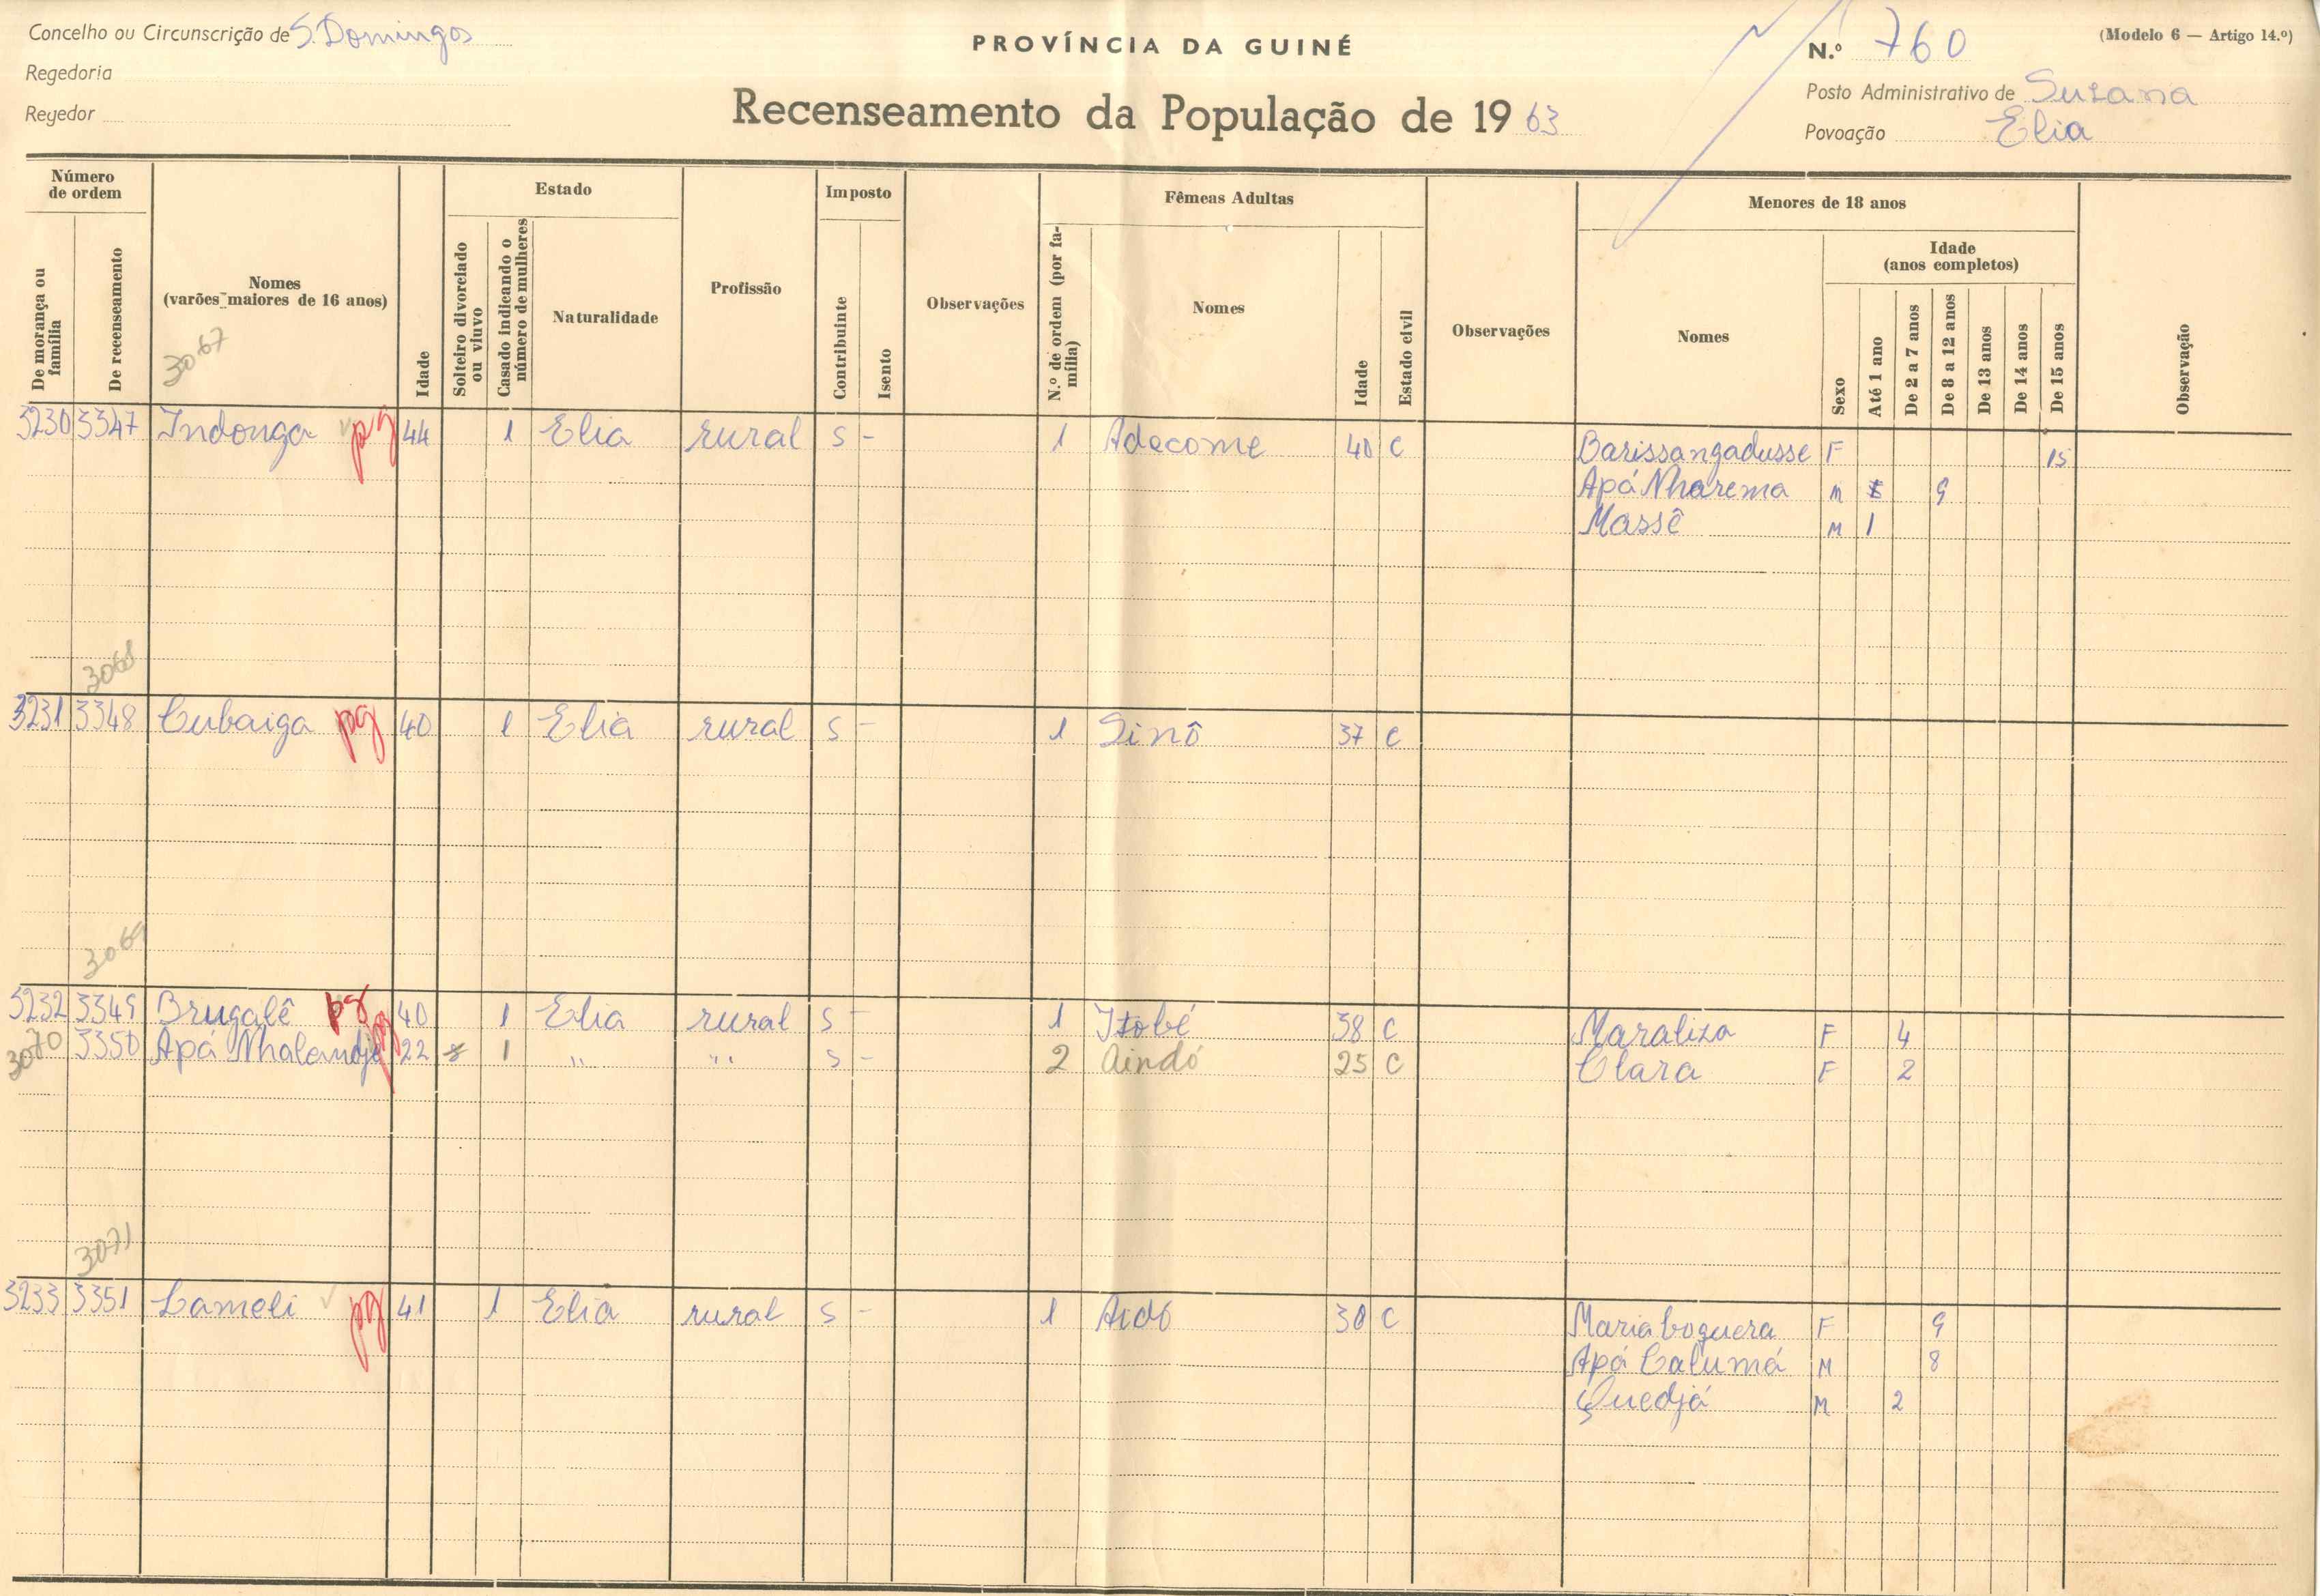 Concelho ou Circunscrição de S. Domingos
Regedoria
Regedor
PROVÍNCIA DA GUINÉ
Recenseamento da População de 1963
N.º 760
(Modelo 6 — Artigo 14.º)
Posto Administrativo de Suzana
Povoação Elia
Número de ordem
De morança ou família
De recenseamento
Nomes (varões maiores de 16 anos)
Idade
Estado
Solteiro divorciado ou viuvo
Casado indicando o número de mulheres
Naturalidade
Profissão
Imposto
Contribuinte
Isento
Observações
Fêmeas Adultas
N.º de ordem (por família)
Nomes
Idade
Estado civil
Observações
Menores de 18 anos
Nomes
Sexo
Idade (anos completos)
Até 1 ano
De 2 a 7 anos
De 8 a 12 anos
De 13 anos
De 14 anos
De 15 anos
Observação
3067
3230 3347 Indonga pg 44 1 Elia rural S - 1 Adecome 40 C Barissangadusse F 15
Apá Nharema M 9
Massê M 1
3068
3231 3348 Cubaiga pg 40 1 Elia rural S - 1 Sinô 37 C
3069
3232 3349 Brugalê pg 40 1 Elia rural S - 1 Itobé 38 C Maraliza F 4
3070 3350 Apá Nhalandje 22 1 " " S - 2 Aindó 25 C Clara F 2
3071
3233 3351 Lameli pg 41 1 Elia rural S - 1 Aidó 30 C Maria boguera F 9
Apá Calumá M 8
Quedjá M 2